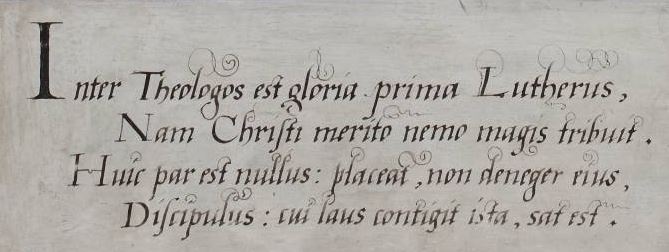 Inter Theologos est gloria prima Lutherus,
Nam Christi merito nemo magis tribuit.
Huic par est nullus: placeat, non deneger eius,
Discipulus: cui laus contigit ista, sat est.